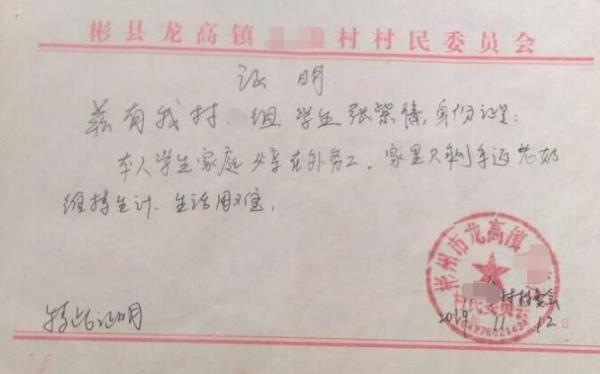 彬县龙高镇 村村民委员会
证明
兹有我村 组学生张紫倩,身份证号:
本人学生家庭 在外务工,家里只剩年迈 奶
维持生计、生活困难,
特此证明
彬州市龙高镇
村民委员会
村村委会
2019 11 12日